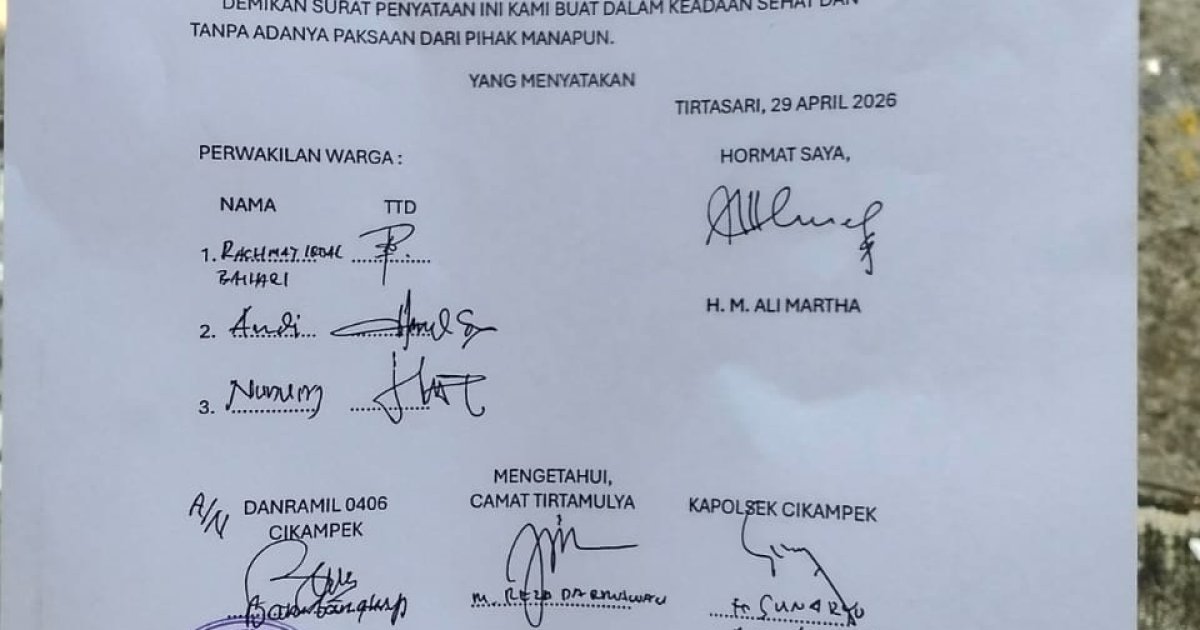 DEMIKAN SURAT PENYATAAN INI KAMI BUAT DALAM KEADAAN SEHAT DAN
TANPA ADANYA PAKSAAN DARI PIHAK MANAPUN.
YANG MENYATAKAN
TIRTASARI, 29 APRIL 2026
PERWAKILAN WARGA :
HORMAT SAYA,
NAMA TTD
1. RACHMAT IQBAL
BAIHARI
H. M. ALI MARTHA
2. Andi
3. Nunung
MENGETAHUI,
A/N DANRAMIL 0406 CAMAT TIRTAMULYA KAPOLSEK CIKAMPEK
CIKAMPEK
M. REZA DARMAWAN SUNARYO